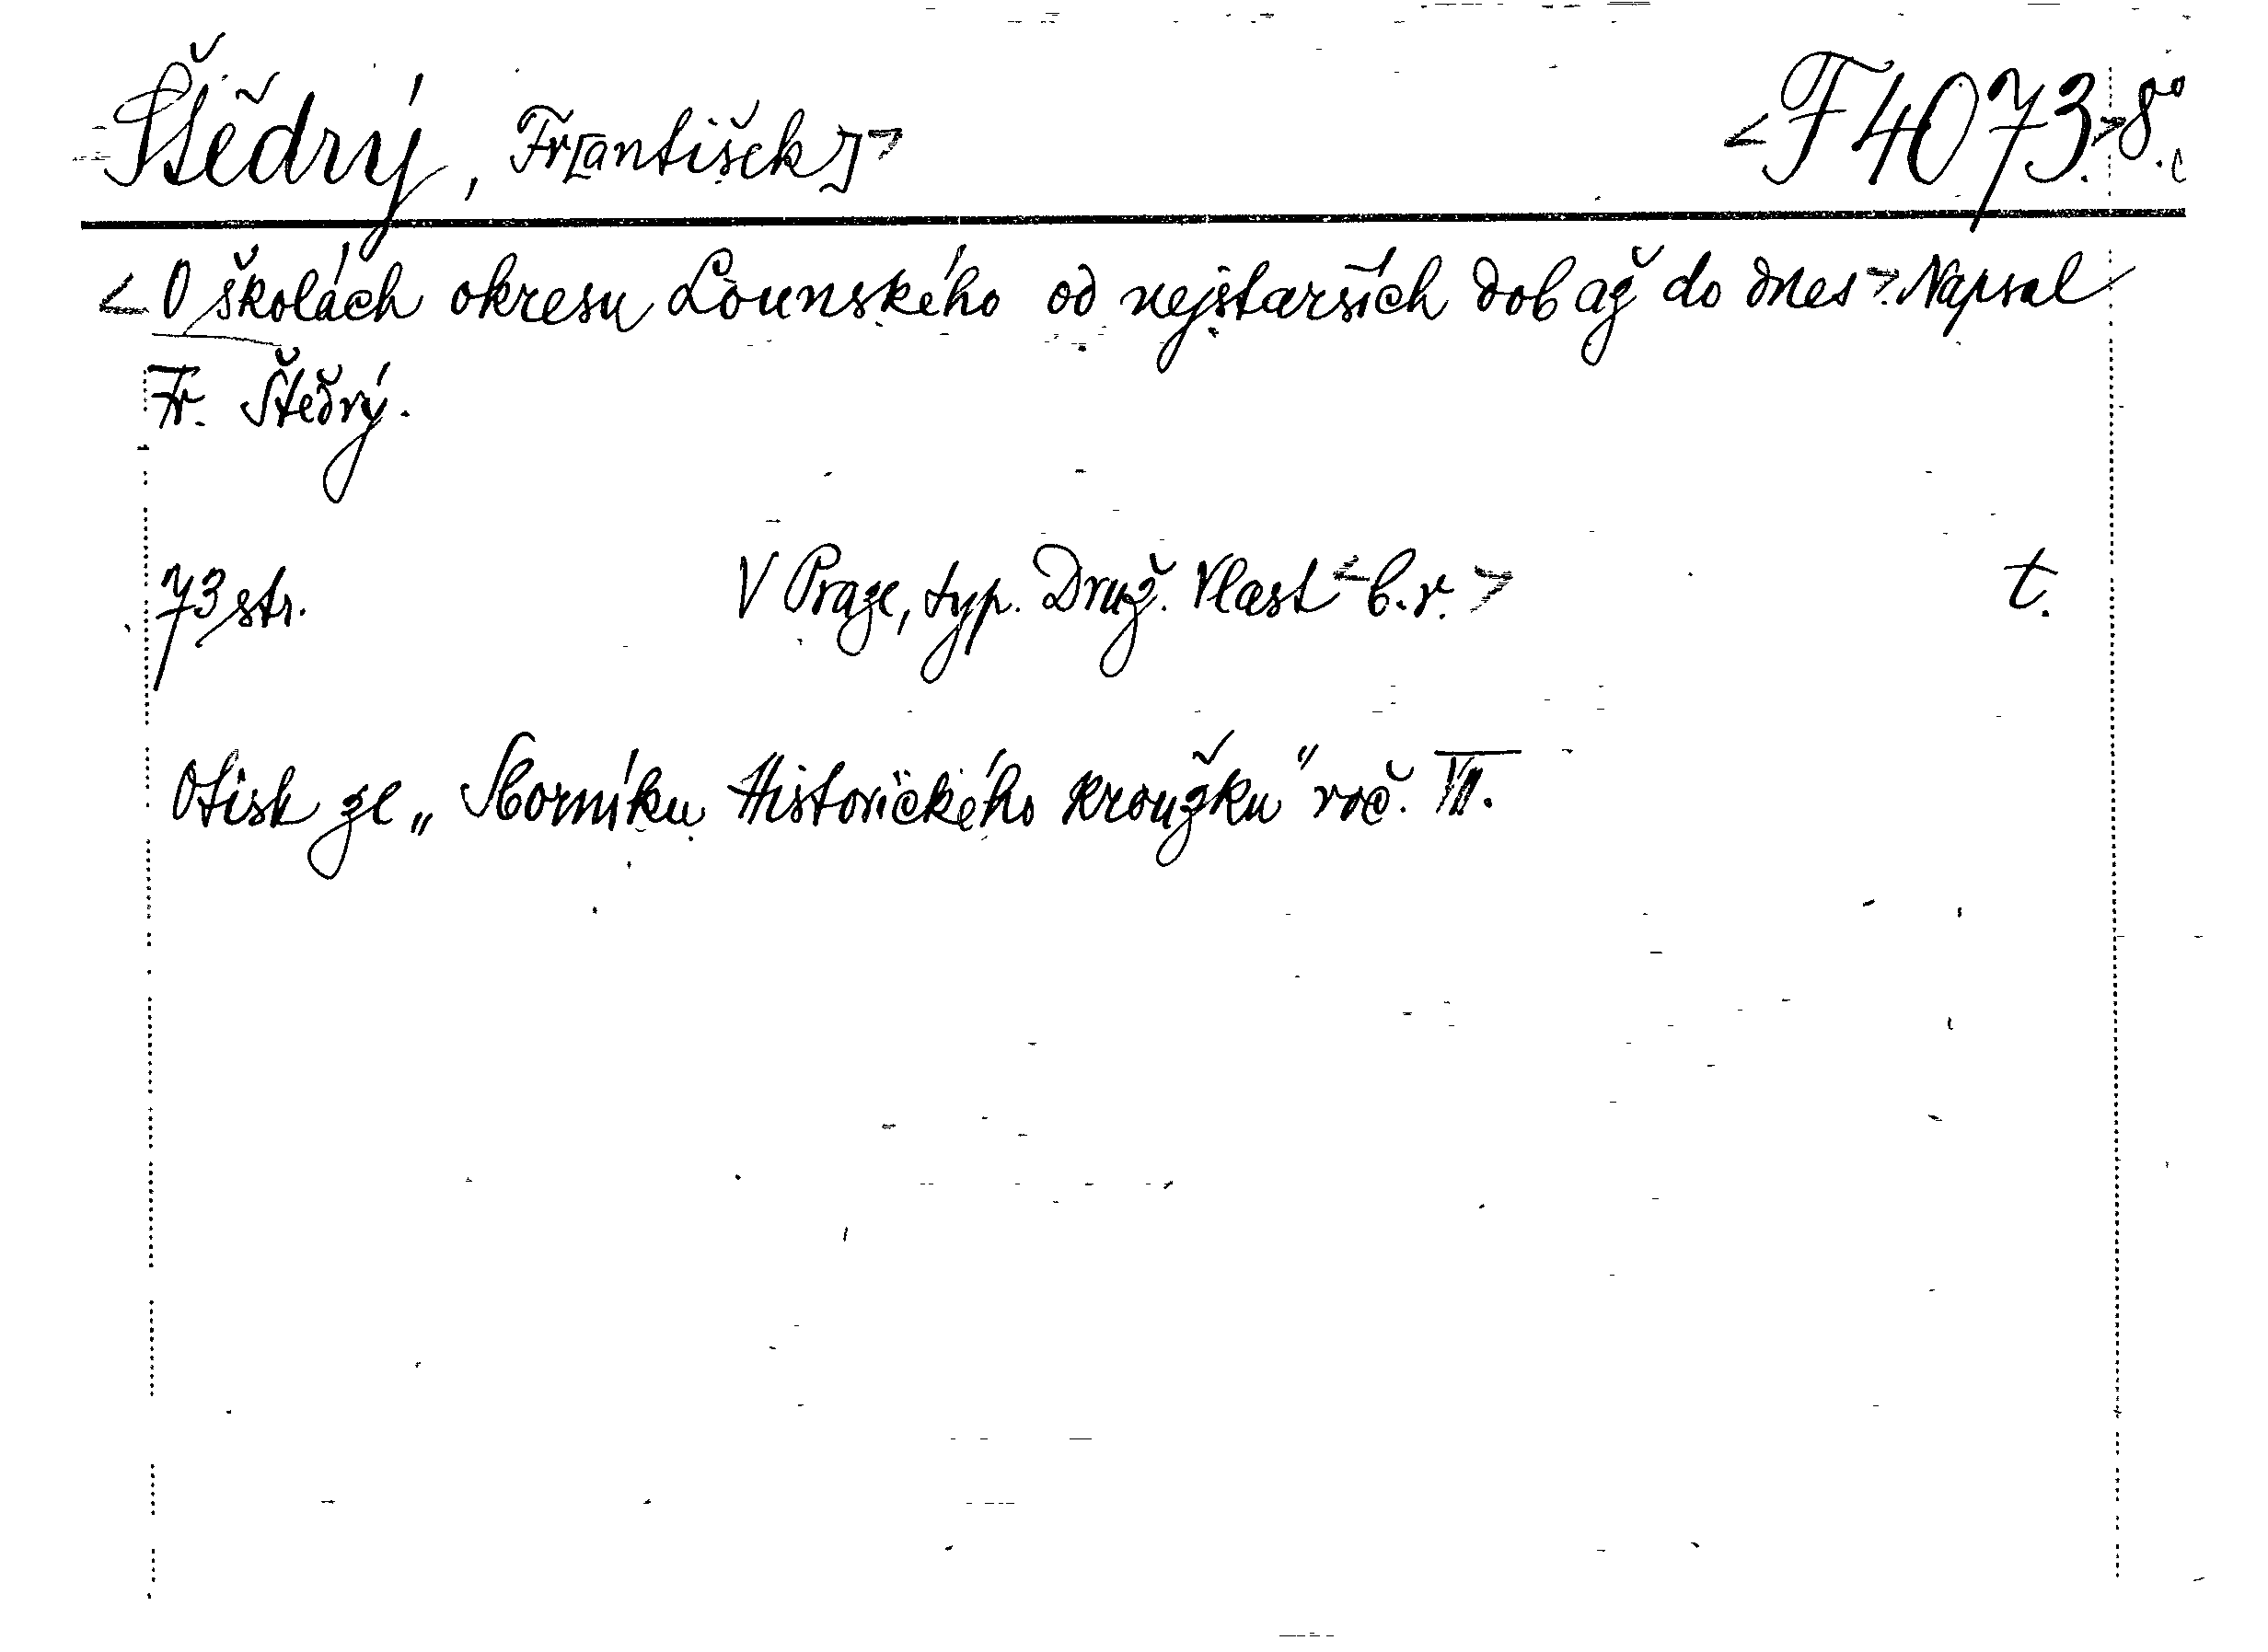 Štědrý, Fr[antišek]> <F 4073.>8°.
<O školách okresu Lounského od nejstarších dob až do dnes>. Napsal
Fr. Štědrý.
73 str. V Praze, typ. Druž. Vlast <b.r.> t.
Otisk ze „Sborníku Historického kroužku" roč. VII.